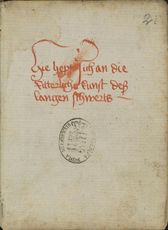 2
Hye hept sich an die
Ritterliche kunst des
langen schwerts